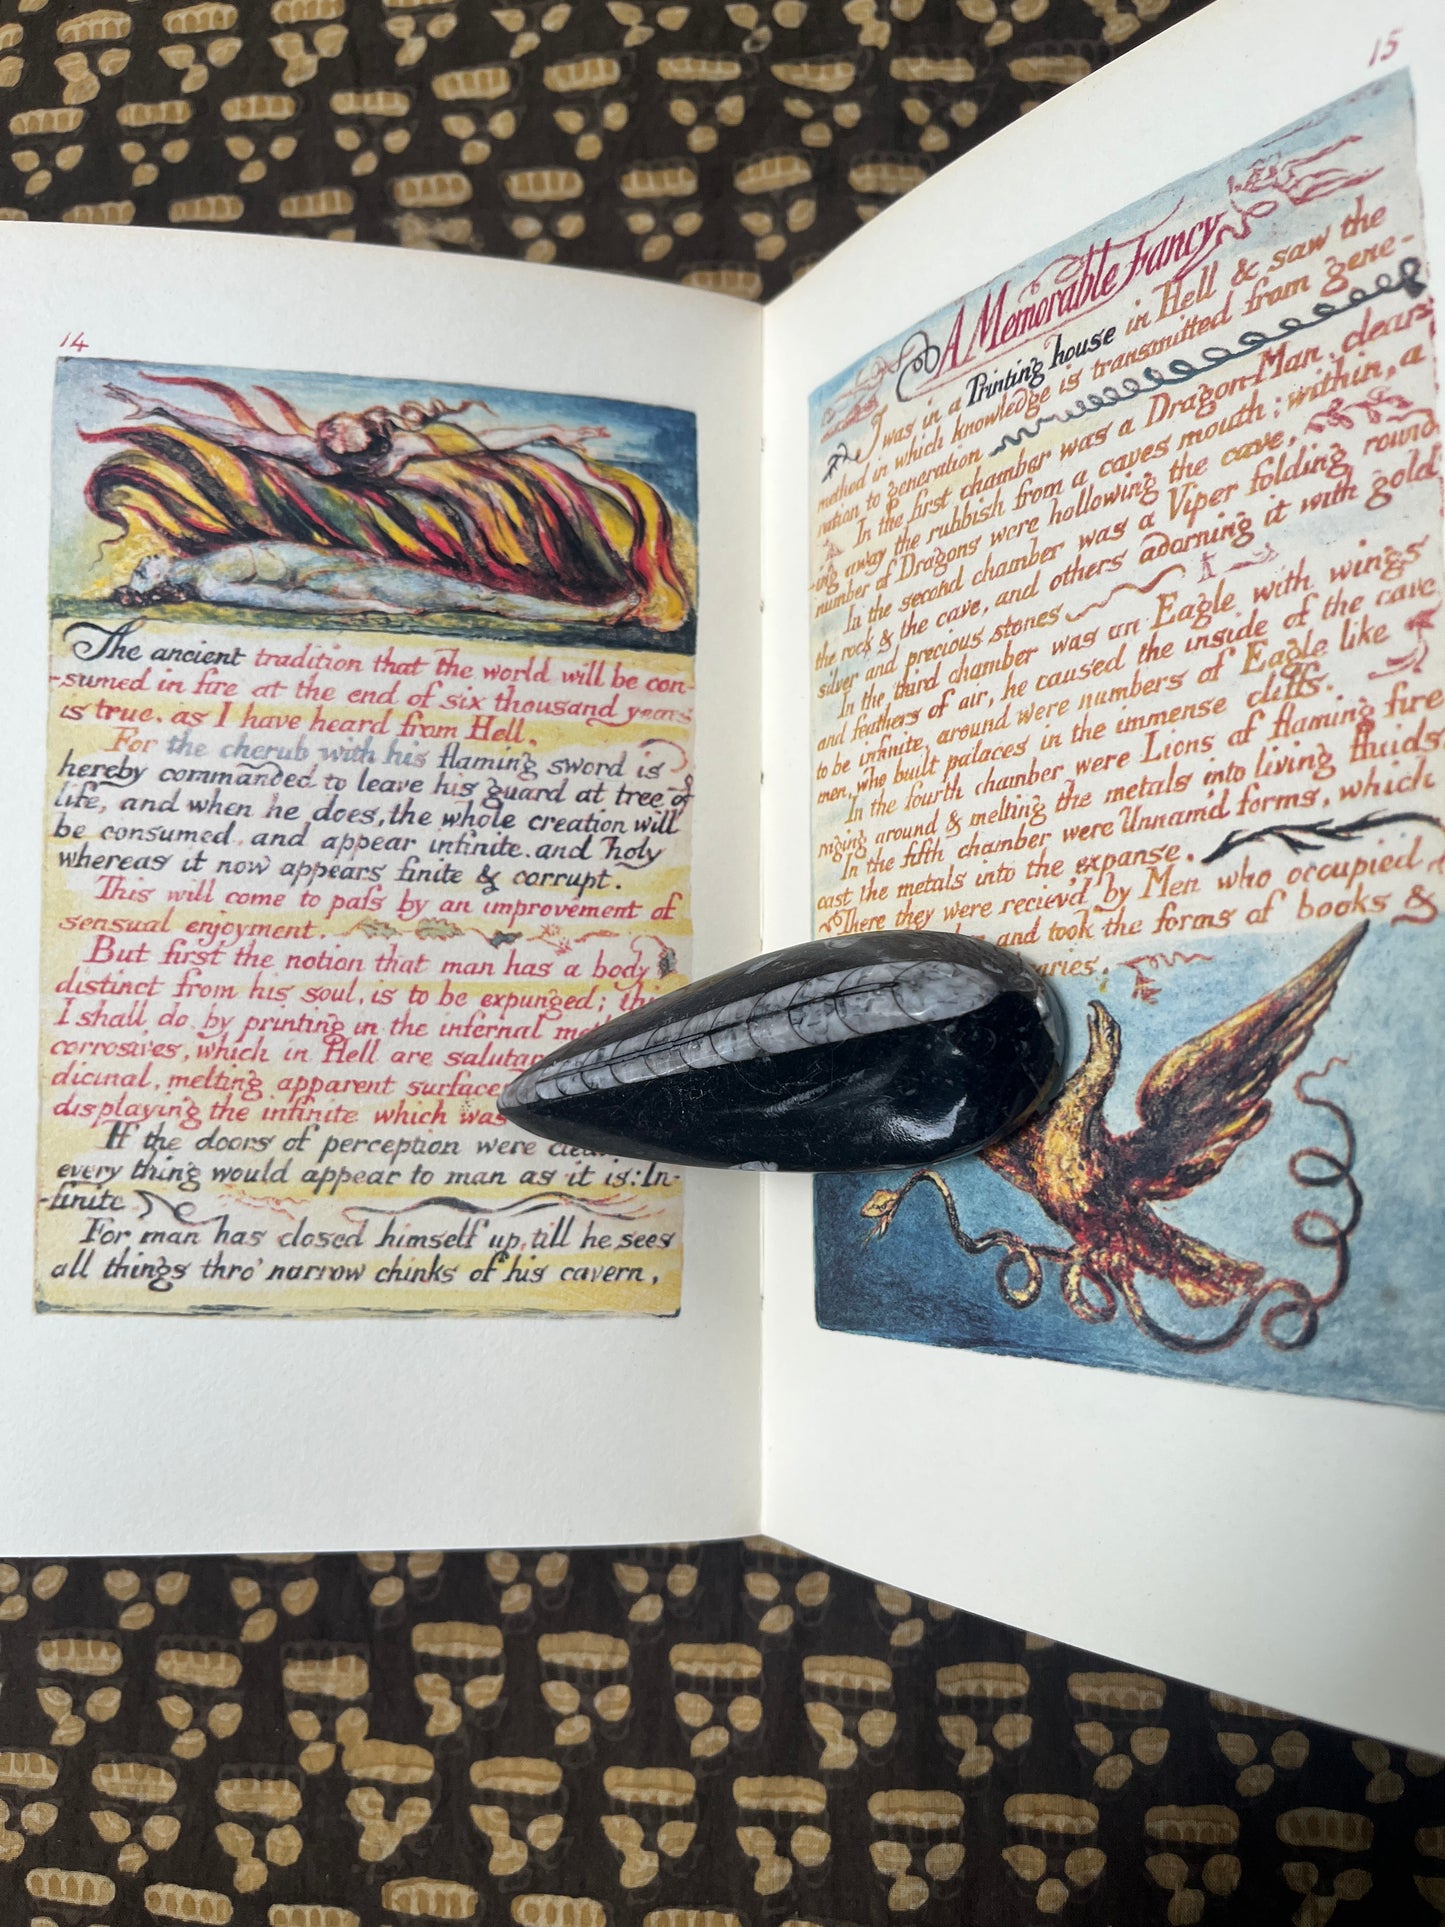 14
The ancient tradition that the world will be con-
-sumed in fire at the end of six thousand years
is true. as I have heard from Hell.
For the cherub with his flaming sword is
hereby commanded to leave his guard at tree of
life, and when he does, the whole creation will
be consumed, and appear infinite. and holy
whereas it now appears finite & corrupt.
This will come to pass by an improvement of
sensual enjoyment.
But first the notion that man has a body
distinct from his soul, is to be expunged; this
I shall do, by printing in the infernal
corrosives, which in Hell are
melting apparent surfaces
displaying the infinite which was
If the doors of perception were
every thing would appear to man as it is: In-
-finite.
For man has closed himself up, till he sees
all things thro' narrow chinks of his cavern.
15
A Memorable Fancy
I was in a Printing house in Hell & saw the
method in which knowledge is transmitted from gene-
-ration to generation
In the first chamber was a Dragon-Man, clear-
-ing away the rubbish from a caves mouth; within, a
number of Dragons were hollowing the cave,
In the second chamber was a Viper folding round
the rock & the cave, and others adorning it with gold
silver and precious stones
In the third chamber was an Eagle with wings
and feathers of air, he caused the inside of the cave
to be infinite, around were numbers of Eagle like
men, who built palaces in the immense cliffs.
In the fourth chamber were Lions of flaming fire
raging around & melting the metals into living fluids
In the fifth chamber were Unnam'd forms, which
cast the metals into the expanse.
There they were reciev'd by Men who occupied
and took the forms of books &